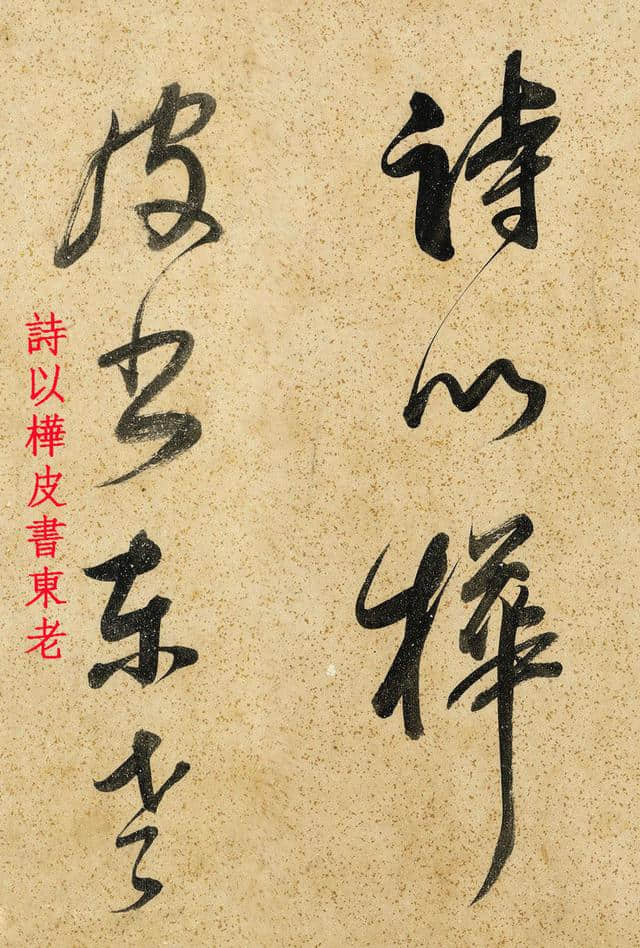 詩以樺
皮書東老
詩以樺皮書東老